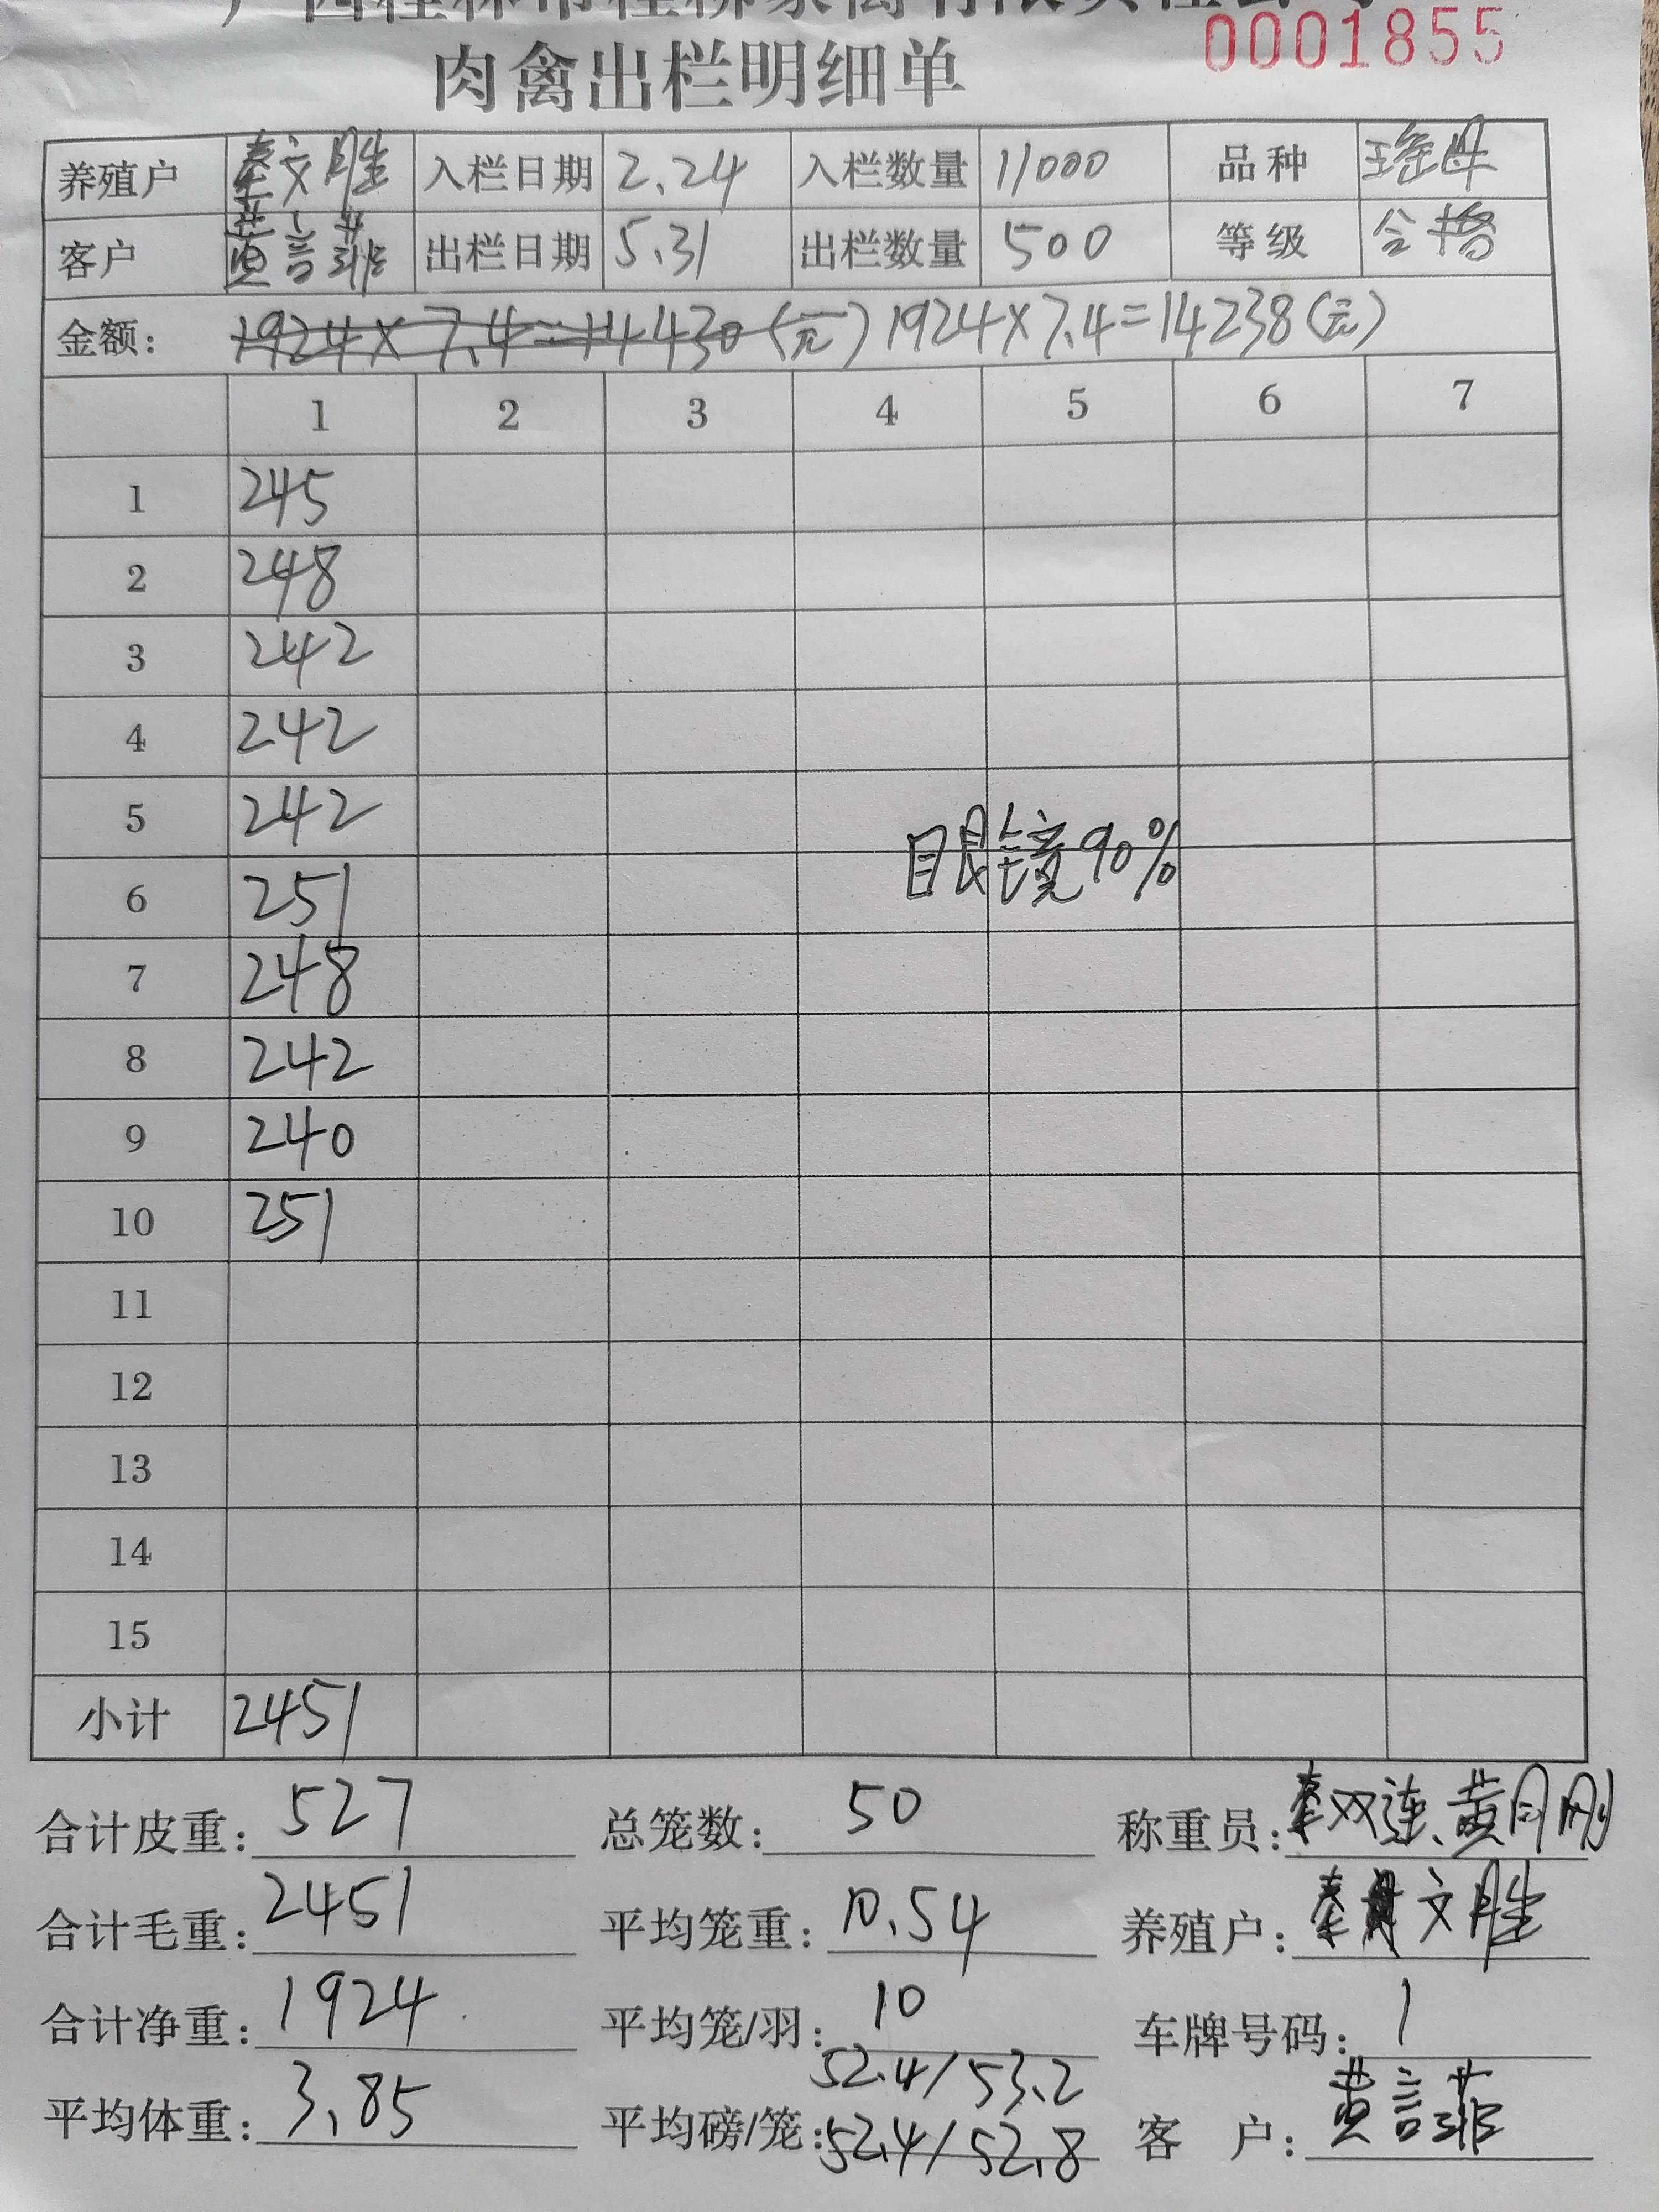 肉禽出栏明细单
0001855
养殖户 秦文胜 入栏日期 2.24 入栏数量 11000 品种 瑶鸡
客户 黄言菲 出栏日期 5.31 出栏数量 500 等级 合格
金额: 1924×7.4=14430(元) 1924×7.4=14238(元)
1 2 3 4 5 6 7
1 245
2 248
3 242
4 242
5 242
眼镜90%
6 251
7 248
8 242
9 240
10 251
11
12
13
14
15
小计 2451
合计皮重: 527 总笼数: 50 称重员: 秦双连、黄月刚
合计毛重: 2451 平均笼重: 10.54 养殖户: 秦文胜
合计净重: 1924 平均笼/羽: 10 车牌号码: 1
52.4/53.2
平均体重: 3.85 平均磅/笼: 52.4/52.8 客 户: 黄言菲